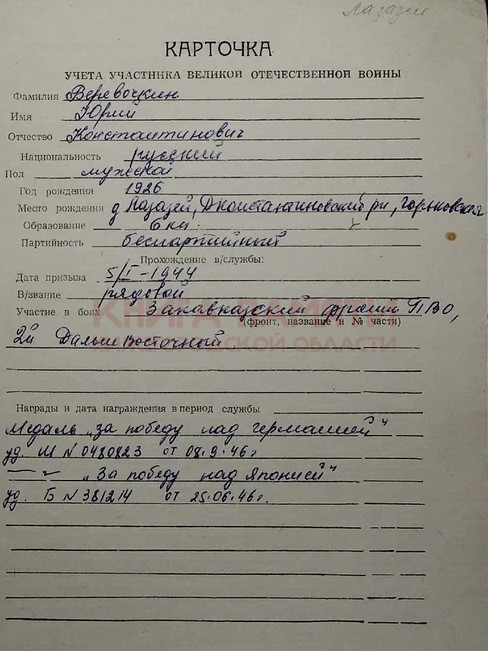 Лазазей
КАРТОЧКА
УЧЕТА УЧАСТНИКА ВЕЛИКОЙ ОТЕЧЕСТВЕННОЙ ВОЙНЫ
Фамилия Веревочкин
Имя Юрий
Отчество Константинович
Национальность русский
Пол мужской
Год рождения 1926
Место рождения д Лазазей, Дконстантиновский рн, Горьковская
Образование 6 кл.
Партийность беспартийный
Прохождение в/службы:
Дата призыва 5/I-1944
В/звание рядовой
Участие в боях Закавказский фронт ПВО,
(фронт, название и № части)
2й Дальневосточный
Награды и дата награждения в период службы
Медаль „за победу над германией"
уд М N 0480823 от 08.9.46г
—〃— „За победу над Японией"
уд. Б N 381214 от 25.06.46г.
КНИГА ПАМЯТИ
ОБЛАСТИ